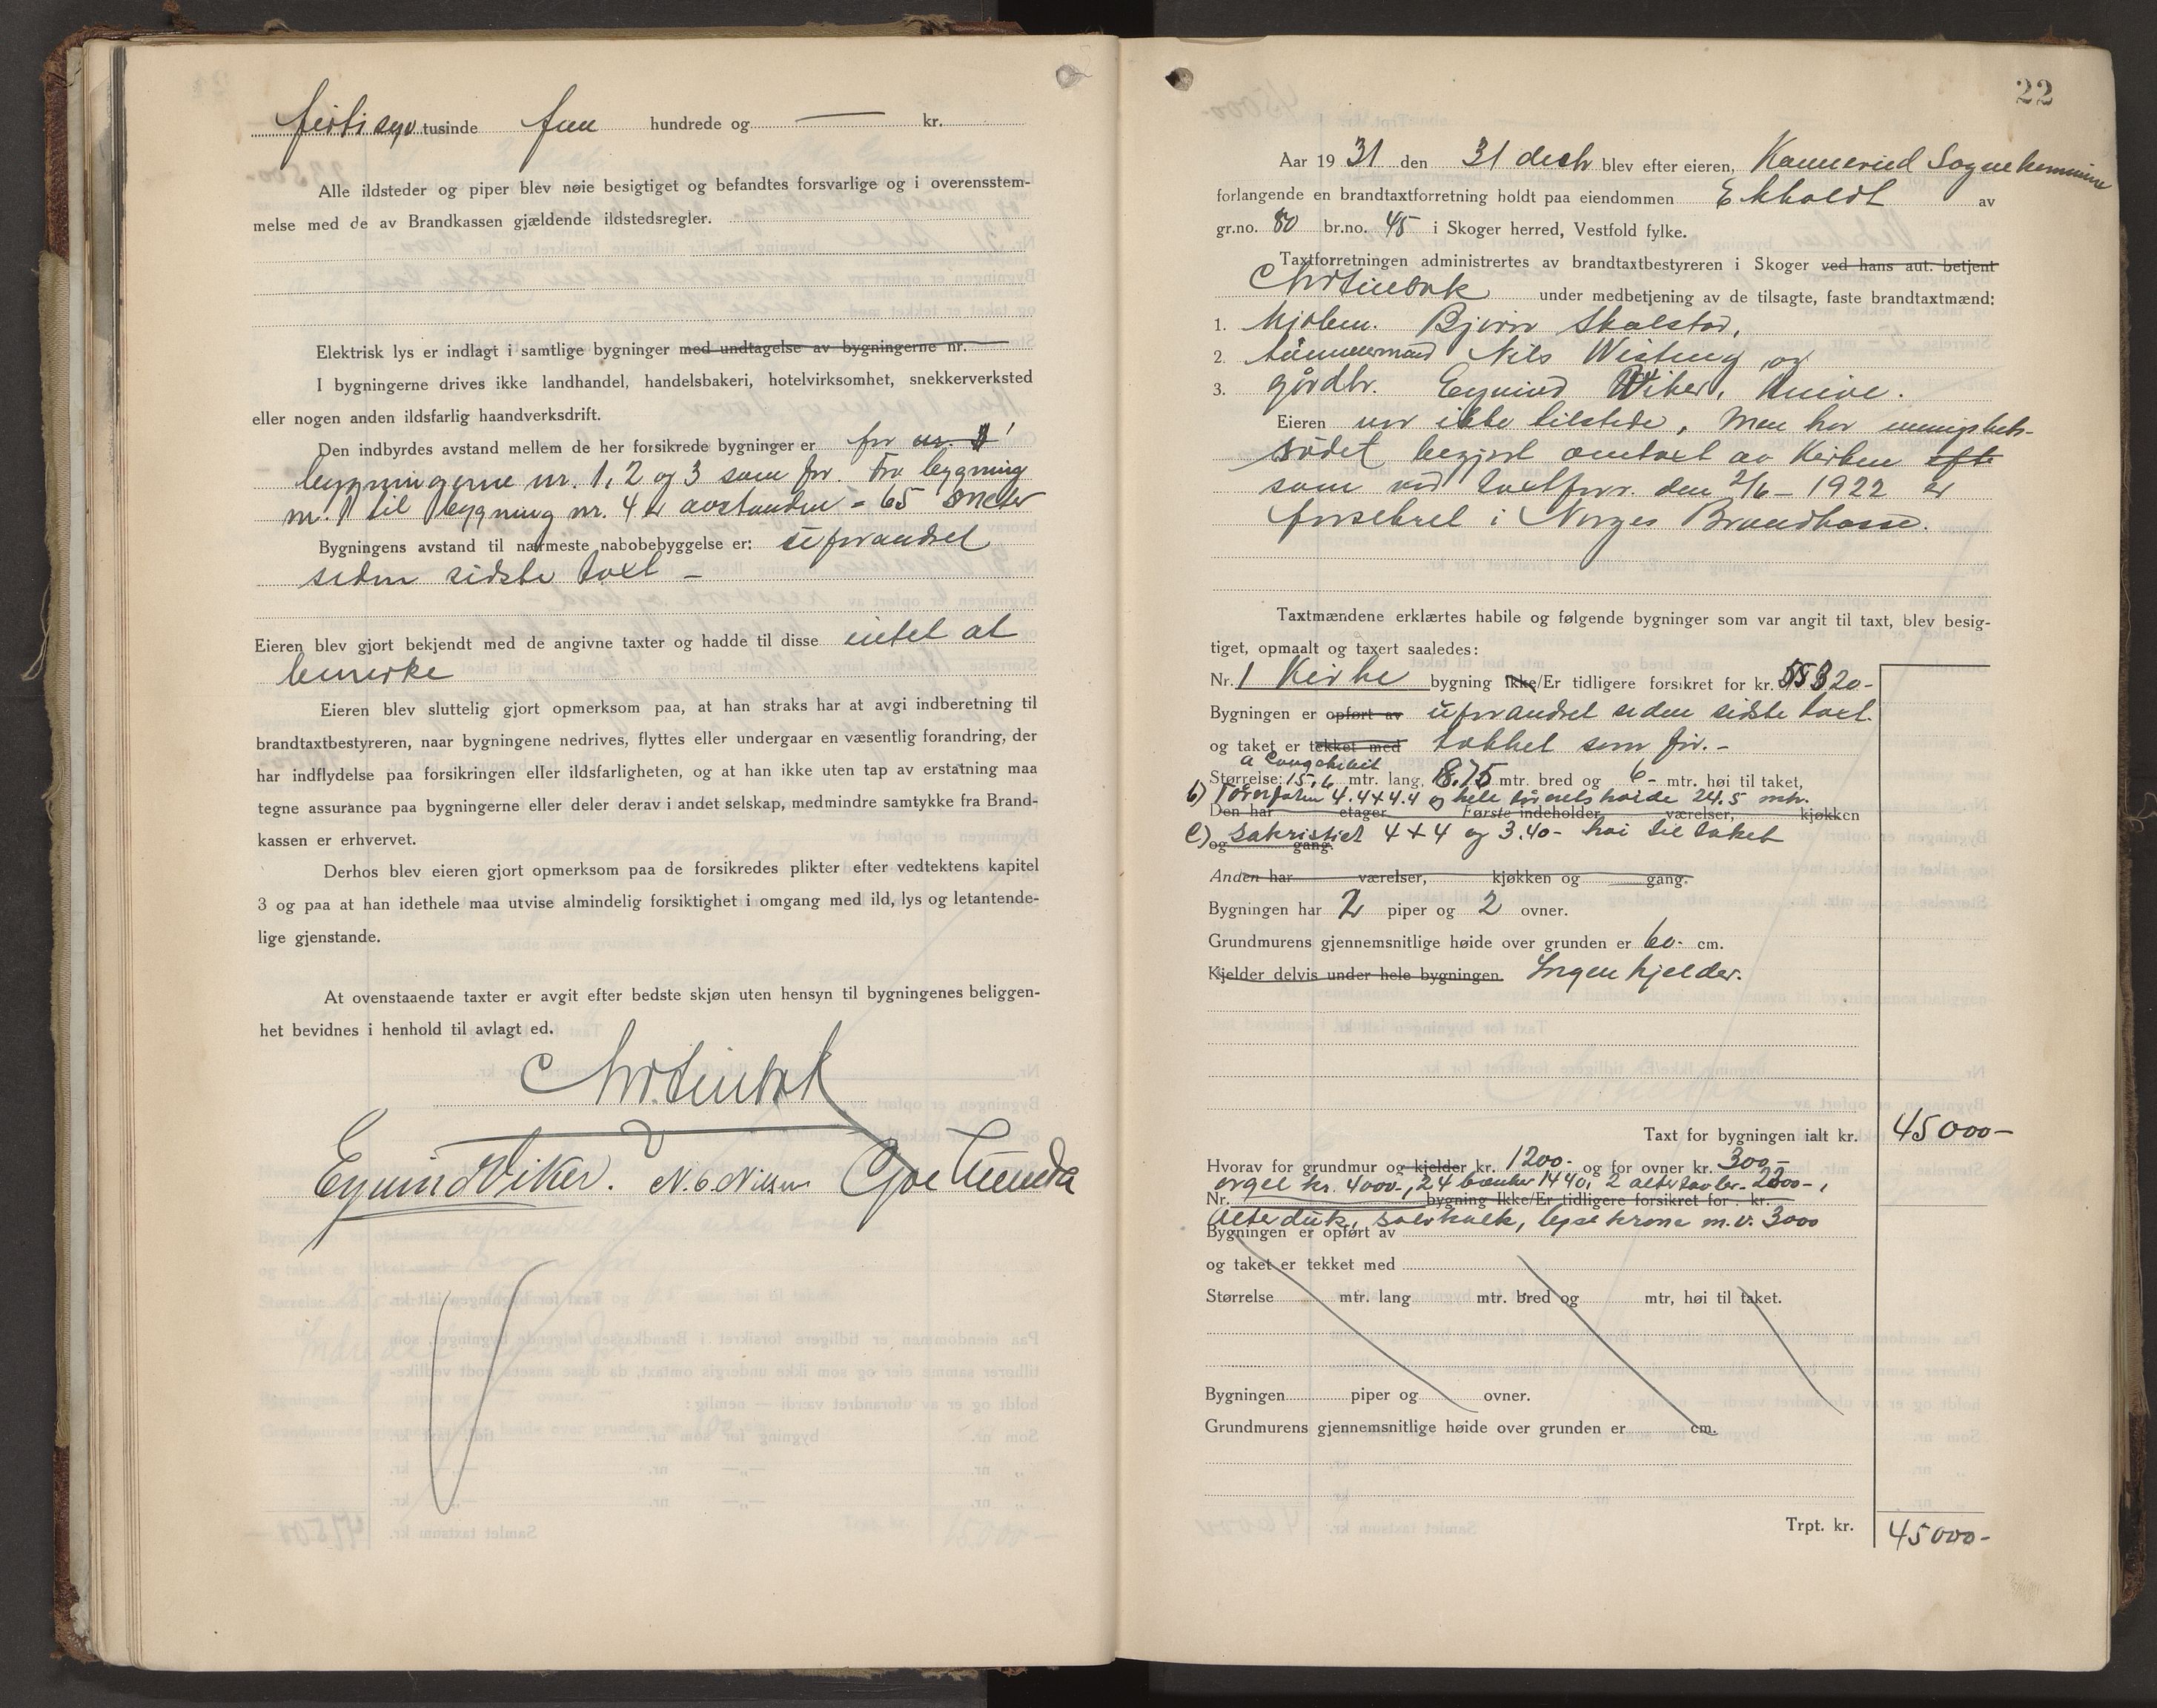 førtisyv tusinde fem hundrede og — kr.
Alle ildsteder og piper blev nøie besigtiget og befandtes forsvarlige og i overensstem-
melse med de av Brandkassen gjældende ildstedsregler.
Elektrisk lys er indlagt i samtlige bygninger med undtagelse av bygningerne nr.
I bygningerne drives ikke landhandel, handelsbakeri, hotelvirksomhet, snekkerverksted
eller nogen anden ildsfarlig haandverksdrift.
Den indbyrdes avstand mellem de her forsikrede bygninger er for nr. 1
bygningerne nr. 1, 2 og 3 som før. Fra bygning
nr. 1 til bygning nr. 4 er avstanden = 65 meter
Bygningens avstand til nærmeste nabobebyggelse er: uforandret
siden sidste taxt –
Eieren blev gjort bekjendt med de angivne taxter og hadde til disse intet at
bemerke
Eieren blev sluttelig gjort opmerksom paa, at han straks har at avgi indberetning til
brandtaxtbestyreren, naar bygningene nedrives, flyttes eller undergaar en væsentlig forandring, der
har indflydelse paa forsikringen eller ildsfarligheten, og at han ikke uten tap av erstatning maa
tegne assurance paa bygningerne eller deler derav i andet selskap, medmindre samtykke fra Brand-
kassen er erhvervet.
Derhos blev eieren gjort opmerksom paa de forsikredes plikter efter vedtektens kapitel
3 og paa at han idethele maa utvise almindelig forsiktighet i omgang med ild, lys og letantende-
lige gjenstande.
At ovenstaaende taxter er avgit efter bedste skjøn uten hensyn til bygningenes beliggen-
het bevidnes i henhold til avlagt ed.
Eyvind Viker. N. O. Nilsen
22
Aar 1931 den 31 decbr blev efter eieren, Konnerud Sognekommune
forlangende en brandtaxtforretning holdt paa eiendommen Ekholdt av
gr.no. 80 br.no. 45 i Skoger herred, Vestfold fylke.
Taxtforretningen administrertes av brandtaxtbestyreren i Skoger ved hans aut. betjent
under medbetjening av de tilsagte, faste brandtaxtmænd:
1. Bjørn Skalstad,
2. tømmermand Nils Wisting og
3. gårdbr. Eyvind Wiker, Kuive.
Eieren var ikke tilstede, men har menighets-
rådet begjært omtaxt av kirken efter
som ved taxtforr. den 2/6 – 1922 er
forsikret i Norges Brandkasse.
Taxtmændene erklærtes habile og følgende bygninger som var angit til taxt, blev besig-
tiget, opmaalt og taxert saaledes:
Nr. 1 Kirke bygning Ikke/Er tidligere forsikret for kr. 55320-
Bygningen er opført av uforandret siden sidste taxt.
og taket er tekket med tækket som før. –
a Langskibet
Størrelse: 15,6 mtr. lang, 8.75 mtr. bred og 6- mtr. høi til taket,
b) Tårnfoten 4.4 x 4.4 og hele tårnets høide 24.5 mtr.
Den har etager. Første indeholder værelser, kjøkken
c) sakristiet 4 x 4 og 3.40- høi til taket
og gang.
Anden har værelser, kjøkken og gang.
Bygningen har 2 piper og 2 ovner.
Grundmurens gjennemsnitlige høide over grunden er 60- cm.
Kjelder delvis under hele bygningen. Ingen kjelder.
Taxt for bygningen ialt kr. 45000–
Hvorav for grundmur og kjelder kr. 1200- og for ovner kr. 300–
orgel kr. 4000-, 24 bænker 1440, 2 altertavler- 2300-,
Nr. bygning Ikke/Er tidligere forsikret for kr.
Alterduk, sølvkalk, lysekrone m.v. 3000
Bygningen er opført av
og taket er tekket med
Størrelse mtr. lang mtr. bred og mtr, høi til taket.
Bygningen piper og ovner.
Grundmurens gjennemsnitlige høide over grunden er cm.
Trpt. kr. 45000-